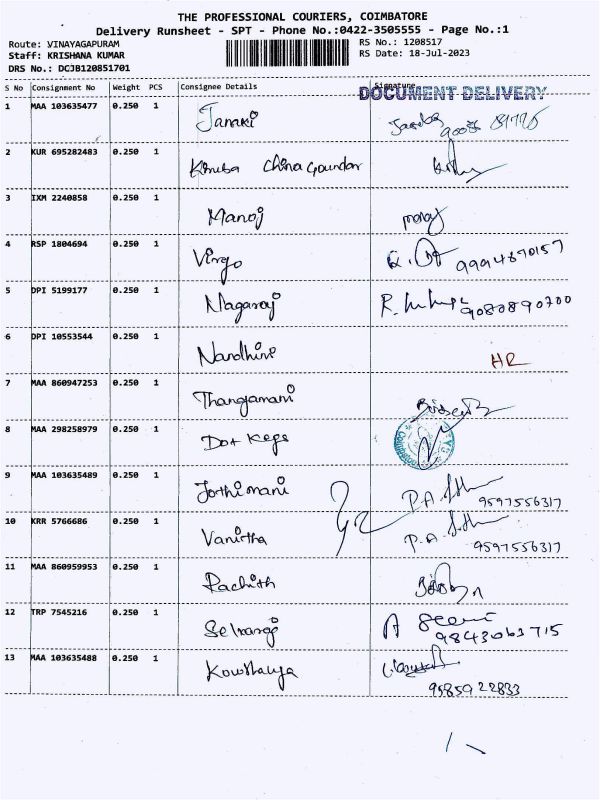 THE PROFESSIONAL COURIERS, COIMBATORE
Delivery Runsheet - SPT - Phone No.:0422-3505555 - Page No.:1
Route: VINAYAGAPURAM
Staff: KRISHANA KUMAR
DRS No.: DCJB120851701
RS No.: 1208517
RS Date: 18-Jul-2023
S No Consignment No Weight PCS Consignee Details Signature
DOCUMENT DELIVERY
1 MAA 103635477 0.250 1 Janaki
2 KUR 695282483 0.250 1 Kiruba China Goundar
3 IXM 2240858 0.250 1 Manoj manoj
4 RSP 1804694 0.250 1 Virgo 9994670157
5 DPI 5199177 0.250 1 Nagaraj R. 9080890700
6 DPI 10553544 0.250 1 Nandhini HR
7 MAA 860947253 0.250 1 Thangamani
8 MAA 298258979 0.250 1 Dot Kegs
9 MAA 103635489 0.250 1 Jothimani P.A. 9597556317
10 KRR 5766686 0.250 1 Vanitha P.A. 9597556317
11 MAA 860959953 0.250 1 Rachith
12 TRP 7545216 0.250 1 Selvaraj 9843063715
13 MAA 103635488 0.250 1 Kowshalya 9585922833